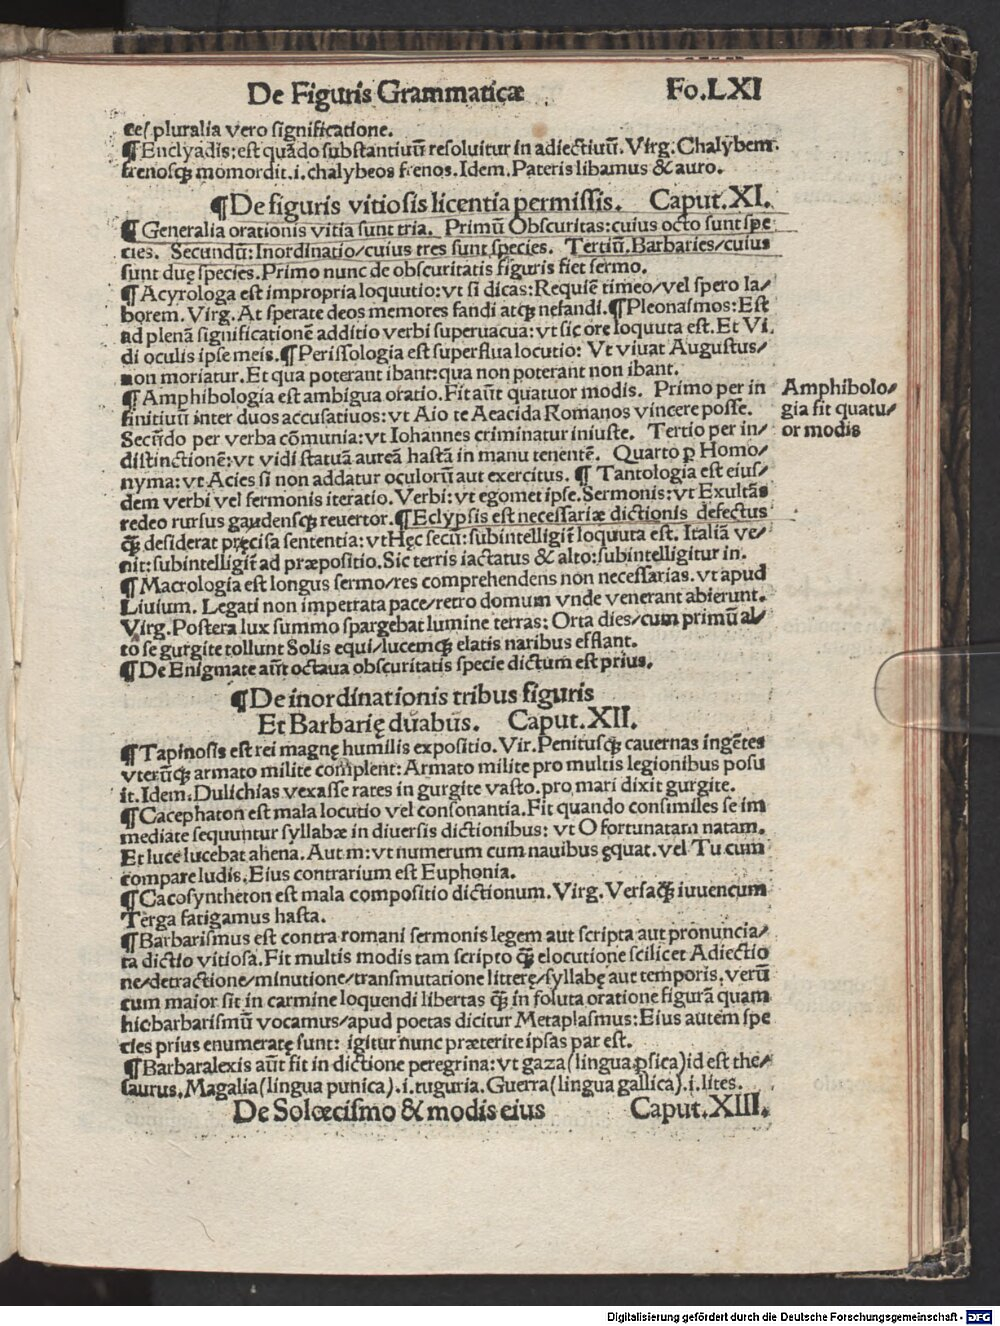 De Figuris Grammaticæ Fo.LXI
ce/ pluralia vero significatione.
¶ Enclyadis: est quãdo substantiuũ resoluitur in adiectiuũ. Virg: Chalybem
frenosqꝫ momordit.i.chalybeos frenos. Idem. Pateris libamus & auro.
¶ De figuris vitiosis licentia permissis. Caput.XI.
¶ Generalia orationis vitia sunt tria. Primũ Obscuritas: cuius octo sunt spe
cies. Secundũ: Inordinatio/ cuius tres sunt species. Tertiũ. Barbaries/ cuius
sunt duę species. Primo nunc de obscuritatis figuris fiet sermo.
¶ Acyrologa est impropria loquutio: vt si dicas: Requiẽ timeo/ vel spero la/
borem. Virg. At sperate deos memores fandi atqꝫ nefandi. ¶ Pleonasmos: Est
ad plenã significationẽ additio verbi superuacua: vt sic ore loquuta est. Et Vi
di oculis ipse meis. ¶ Perissologia est superflua locutio: Vt viuat Augustus/
non moriatur. Et qua poterant ibant: qua non poterant non ibant.
¶ Amphibologia est ambigua oratio. Fit aũt quatuor modis. Primo per in
finitiuũ inter duos accusatiuos: vt Aio te Aeacida Romanos vincere posse.
Secũdo per verba cõmunia: vt Iohannes criminatur iniuste. Tertio per in/
distinctionẽ: vt vidi statuã aureã hastã in manu tenentẽ. Quarto ꝑ Homo/
nyma: vt Acies si non addatur oculorũ aut exercitus. ¶ Tantologia est eius/
dem verbi vel sermonis iteratio. Verbi: vt egomet ipse. Sermonis: vt Exultãs
redeo rursus gaudensqꝫ reuertor. ¶ Eclypsis est necessariæ dictionis defectus
qꝫ̃ desiderat pręcisa sententia: vt Hęc secũ: subintelligit̃ loquuta est. Italiã ve/
nit: subintelligit̃ ad præpositio. Sic terris iactatus & alto: subintelligitur in.
¶ Macrologia est longus sermo/ res comprehendens non necessarias. vt apud
Liuium. Legati non impetrata pace/ retro domum vnde venerant abierunt.
Virg. Postera lux summo spargebat lumine terras: Orta dies/ cum primũ al/
to se gurgite tollunt Solis equi/ lucemqꝫ elatis naribus efflant.
¶ De Enigmate aũt octaua obscuritatis specie dictum est prius.
Amphibolo/
gia fit quatu/
or modis
¶ De inordinationis tribus figuris
Et Barbarię duabus. Caput.XII.
¶ Tapinosis est rei magnę humilis expositio. Vir. Penitusqꝫ cauernas ingẽtes
vterũqꝫ armato milite complent: Armato milite pro multis legionibus posu
it. Idem. Dulichias vexasse rates in gurgite vasto. pro mari dixit gurgite.
¶ Cacephaton est mala locutio vel consonantia. Fit quando consimiles se im
mediate sequuntur syllabæ in diuersis dictionibus: vt O fortunatam natam.
Et luce lucebat ahena. Aut m: vt numerum cum nauibus ęquat. vel Tu cum
compare ludis. Eius contrarium est Euphonia.
¶ Cacosyntheton est mala compositio dictionum. Virg. Versaqꝫ iuuencum
Terga fatigamus hasta.
¶ Barbarismus est contra romani sermonis legem aut scripta aut pronuncia/
ta dictio vitiosa. Fit multis modis tam scripto qꝫ̃ elocutione scilicet Adiectio
ne/ detractione/ minutione/ transmutatione litterę/ syllabę aut temporis. verũ
cum maior sit in carmine loquendi libertas qꝫ̃ in soluta oratione figurã quam
hic barbarismũ vocamus/ apud poetas dicitur Metaplasmus: Eius autem spe
cies prius enumeratę sunt: igitur nunc præterire ipsas par est.
¶ Barbaralexis aũt fit in dictione peregrina: vt gaza (lingua ꝑsica) id est the/
saurus. Magalia (lingua punica).i. tuguria. Guerra (lingua gallica).i. lites.
De Solœcismo & modis eius Caput.XIII.
Digitalisierung gefördert durch die Deutsche Forschungsgemeinschaft - DFG